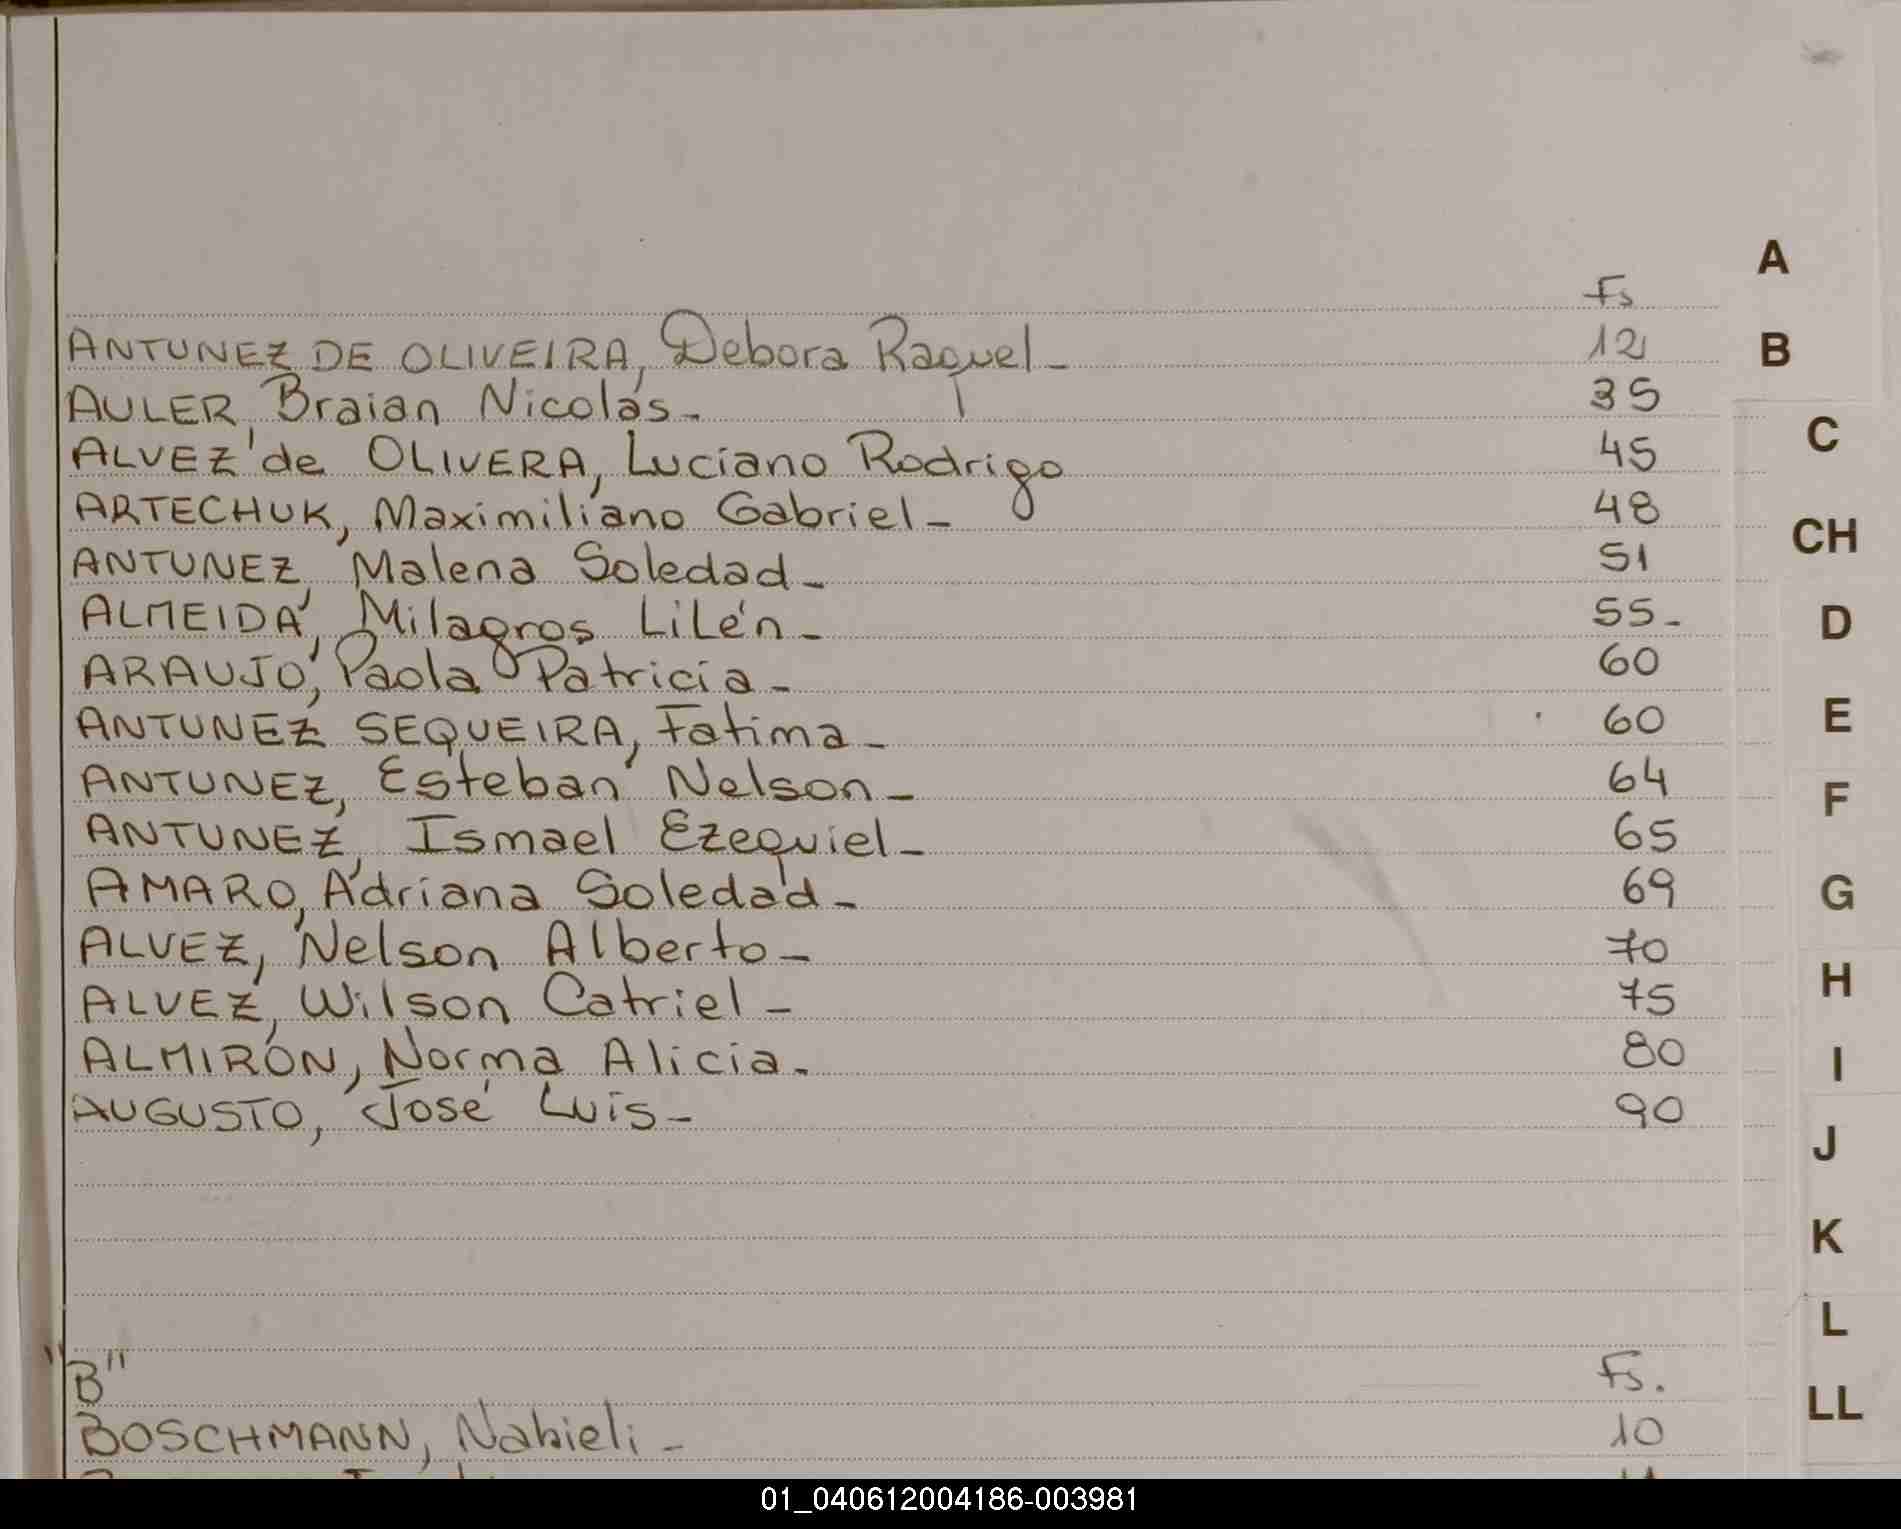 Fs
ANTUNEZ DE OLIVEIRA, Debora Raquel - 12
AULER, Braian Nicolás - 35
ALVEZ de OLIVERA, Luciano Rodrigo 45
ARTECHUK, Maximiliano Gabriel - 48
ANTUNEZ, Malena Soledad - 51
ALMEIDA, Milagros Lilén - 55-
ARAUJO, Paola Patricia - 60
ANTUNEZ SEQUEIRA, Fatima - 60
ANTUNEZ, Esteban Nelson - 64
ANTUNEZ, Ismael Ezequiel - 65
AMARO, Adriana Soledad - 69
ALVEZ, Nelson Alberto - 70
ALVEZ, Wilson Catriel - 75
ALMIRÓN, Norma Alicia. 80
AUGUSTO, José Luis - 90
"B" Fs.
BOSCHMANN, Nahieli - 10
A
B
C
CH
D
E
F
G
H
I
J
K
L
LL
01_040612004186-003981